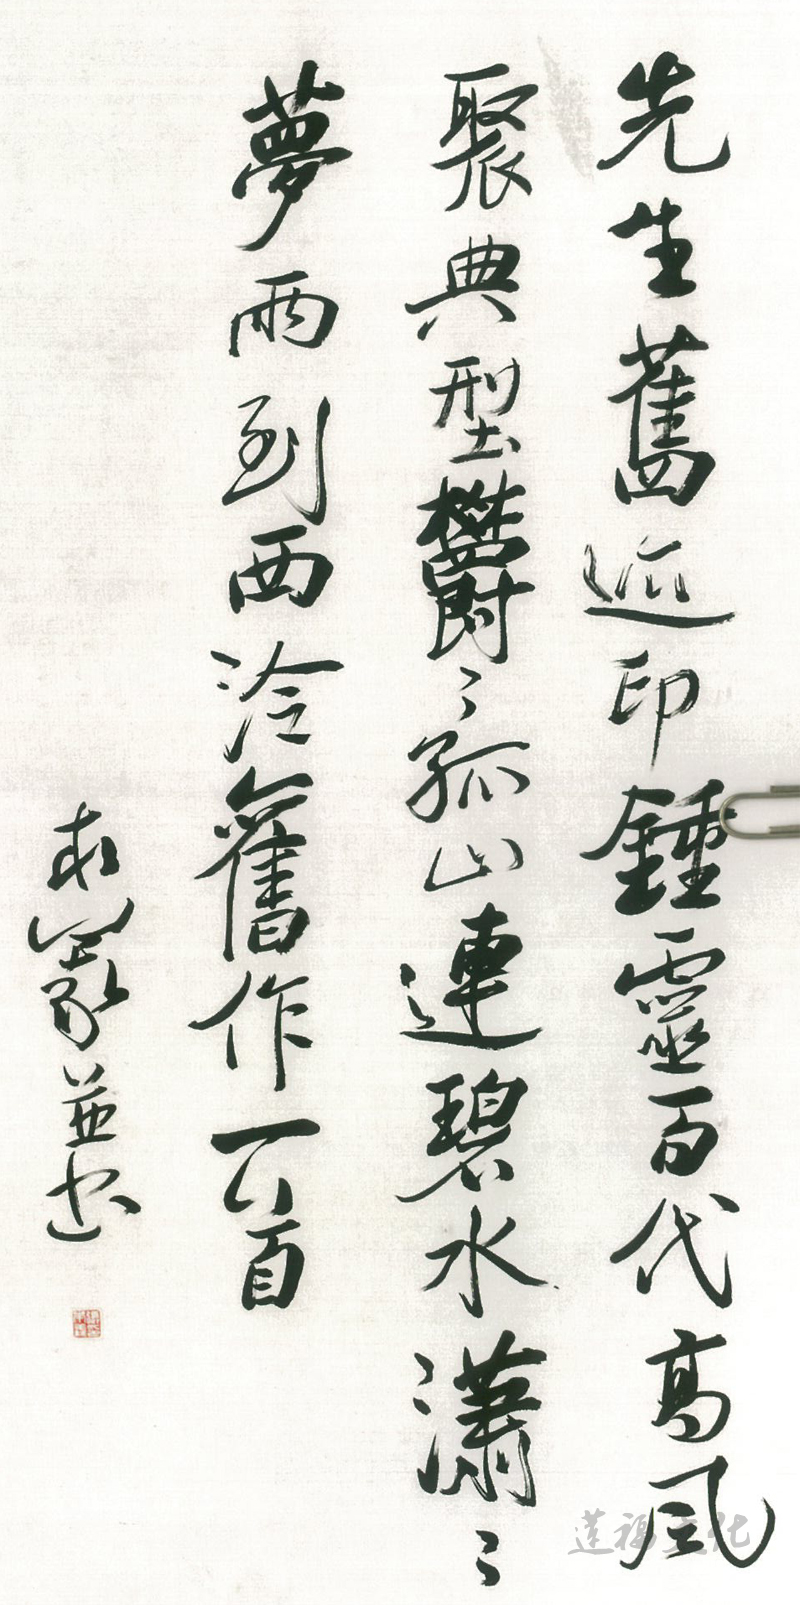 先生舊迹印鍾靈百代高風
聚典型鬱〻孤山連碧水瀟〻
夢雨到西泠舊作一首
並书
蓮福文化